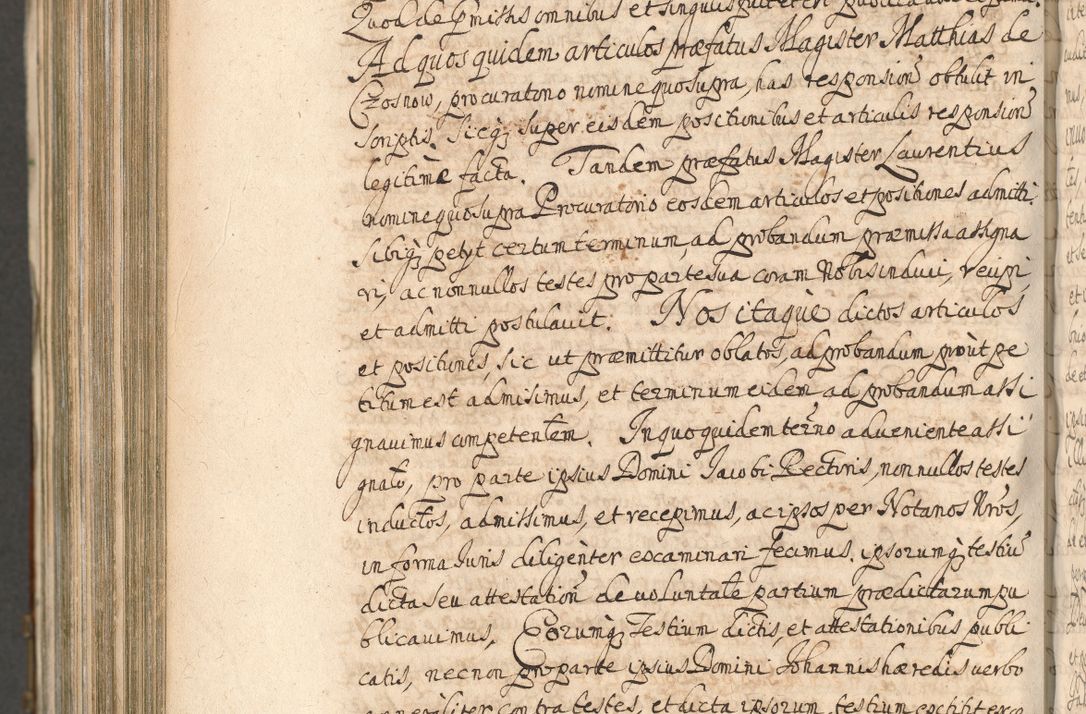 Quod de p̃missis omnibus et singulis
Ad quos quidem articulos præfatus Magister Matthias de
Czosnow, procuratorio nomine quo supra, has responsion̄ obtulit in
scriptis, sicq; super eisdem positionibus et articulis respension̄
legitimè facta. Tandem præfatus Magister Laurentius
nomine quo supra Procuratorio eosdem articulos et positiones admitti,
sibiq; petyt certum terminum, ad probandum præmissa assigna
ri, ac nonnullos testes pro parte sua coram Nobis induci, recipi,
et admitti postulavit. Nos itaque dictos articulos
et positiones, sic ut præmittitur oblatos, ad probandum proùt pe
titum est admisimus, et terminum eidem ad probandum assi
gnauimus competentem. In quo quidem termo adveniente assi
gnato, pro parte ipsius Domini Jacobi Rectoris, nonnullos testes
inductos, admissimus, et recepimus, ac ipsos per Notarios Nros,
in forma Juris diligènter examinari fecimus, ipsorumq; testiū
dicta seu attestation̄ de voluntate partium prædictarum pu
blicauimus, Eorumq; Testium dictis, et attestationibus publi
catis, necnon pro parte ipsius Domini Johannis hæredis verbo
generaliter contra testes, et dicta ipsorum testium